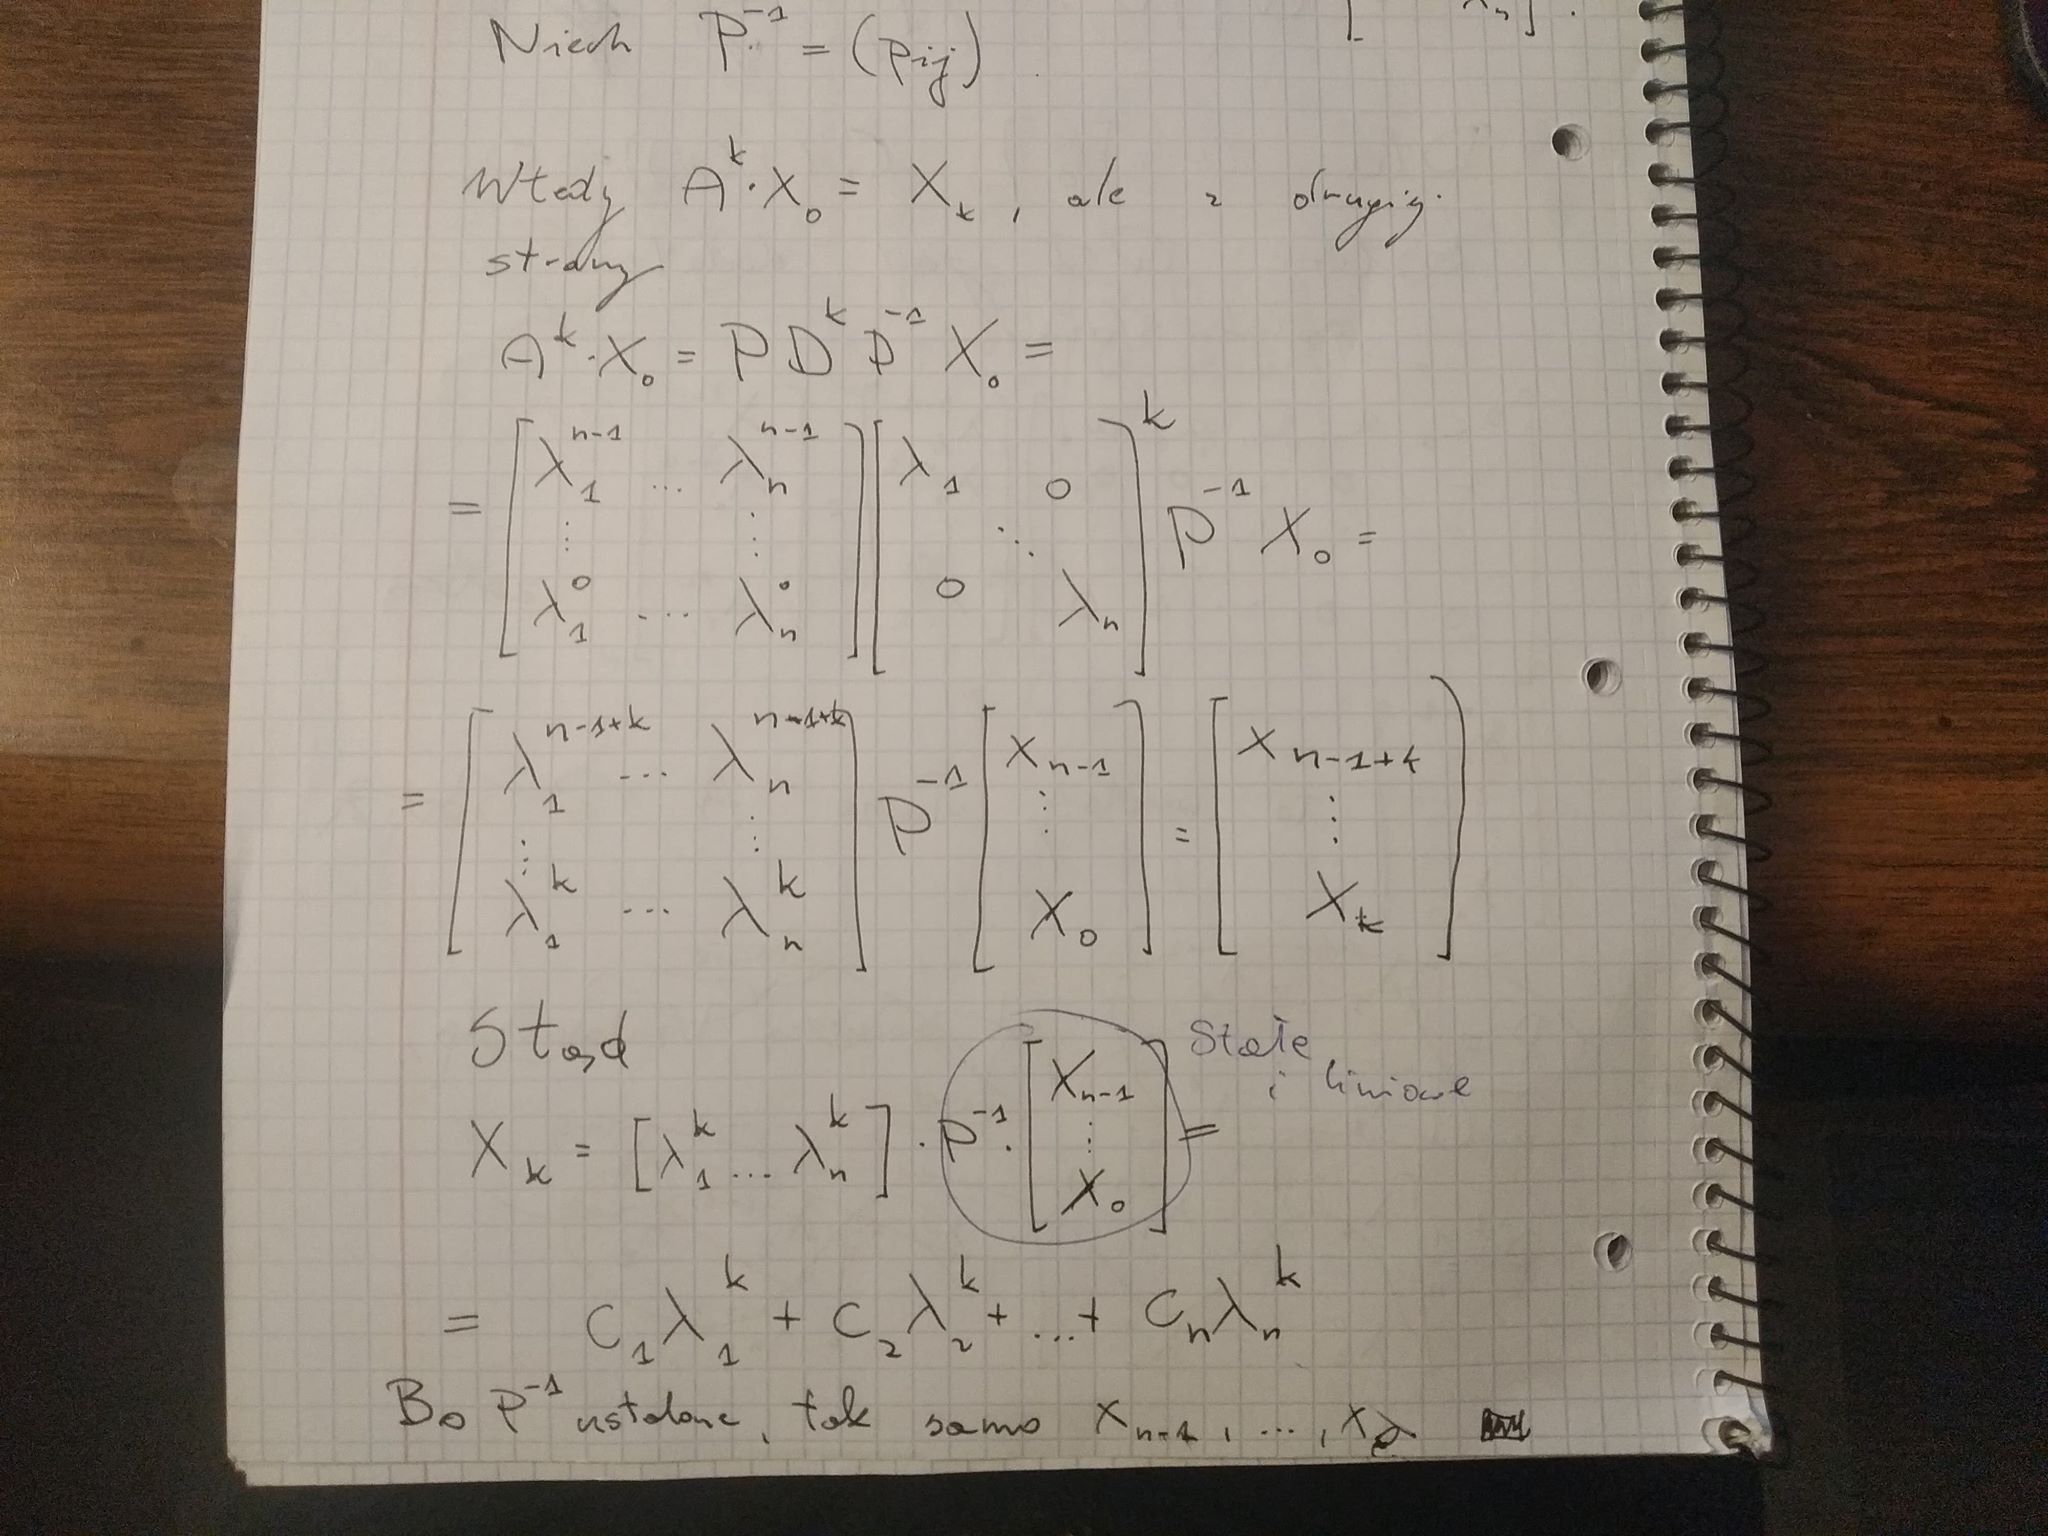 λₙ].
Niech P⁻¹ = (pᵢⱼ)
Wtedy Aᵏ·X₀ = Xₖ, ale z drugiej
strony
Aᵏ·X₀ = P Dᵏ P⁻¹ X₀ =
= [λ₁ⁿ⁻¹ ... λₙⁿ⁻¹ ⋮ ⋮ λ₁⁰ ... λₙ⁰] [λ₁ 0 ⋱ 0 λₙ]ᵏ P⁻¹ X₀ =
= [λ₁ⁿ⁻¹⁺ᵏ ... λₙⁿ⁻¹⁺ᵏ ⋮ ⋮ λ₁ᵏ ... λₙᵏ] P⁻¹ [xₙ₋₁ ⋮ x₀] = [xₙ₋₁₊ₖ ⋮ xₖ]
Stąd
Xₖ = [λ₁ᵏ ... λₙᵏ] · P⁻¹ · [xₙ₋₁ ⋮ x₀] =
Stałe
i liniowe
= C₁λ₁ᵏ + C₂λ₂ᵏ + ... + Cₙλₙᵏ
Bo P⁻¹ ustalone, tak samo xₙ₋₁, ...,